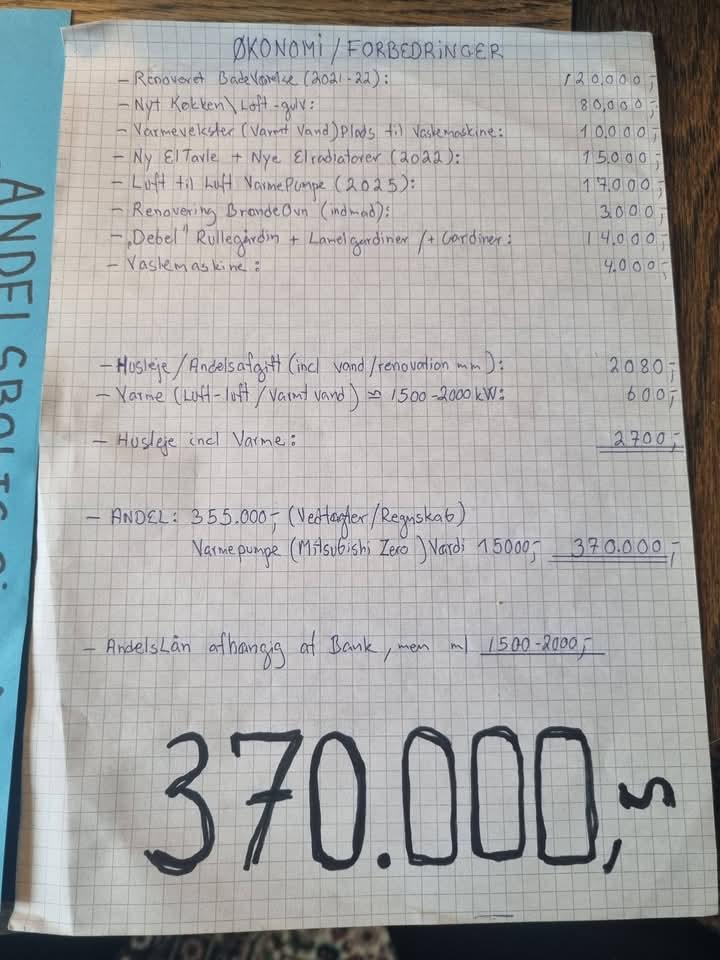 ØKONOMI / FORBEDRINGER
- Renoveret Badeværelse (2021-22): 120,000,-
- Nyt Køkken \ Loft-gulv: 80,000,-
- Varmeveksler (Varmt Vand) Plads til Vaskemaskine: 10,000,-
- Ny ElTavle + Nye Elradiatorer (2022): 15,000,-
- Luft til Luft VarmePumpe (2025): 17,000,-
- Renovering BrændeOvn (indmad): 3,000,-
- "Debel" Rullegardin + Lamelgardiner / + Gardiner: 14,000,-
- Vaskemaskine: 4.000,-
- Husleje / Andelsafgift (incl vand / renovation mm): 2080,-
- Varme (Luft-luft / Varmt vand) ≈ 1500-2000 kW: 600,-
- Husleje incl Varme: 2700,-
- ANDEL: 355.000,- (Vedtægter / Regnskab)
Varmepumpe (Mitsubishi Zero) Værdi 15000,- 370.000,-
- AndelsLån afhængig af Bank, men ml 1500-2000,-
370.000,-
ANDELSBOLIG